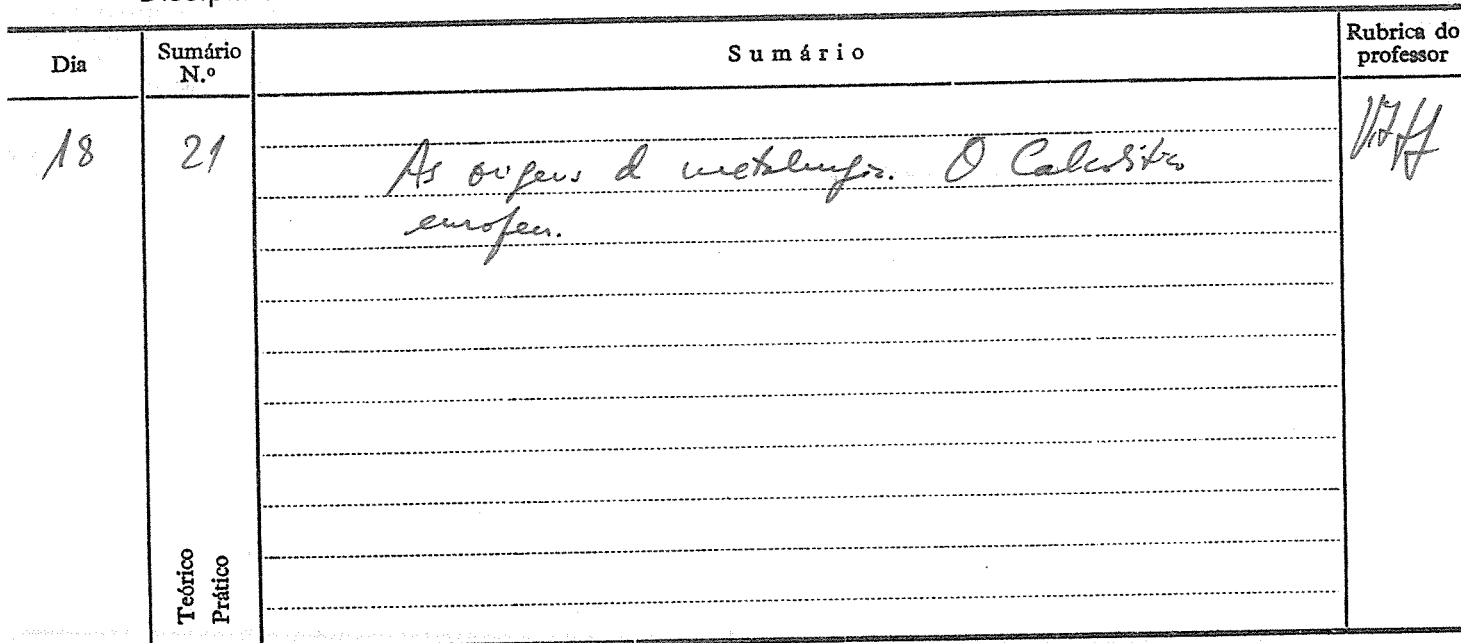 Dia
Sumário
N.º
Sumário
Rubrica do
professor
18
21
As origens da metalurgia. O Calcolítico
europeu.
Teórico
Prático